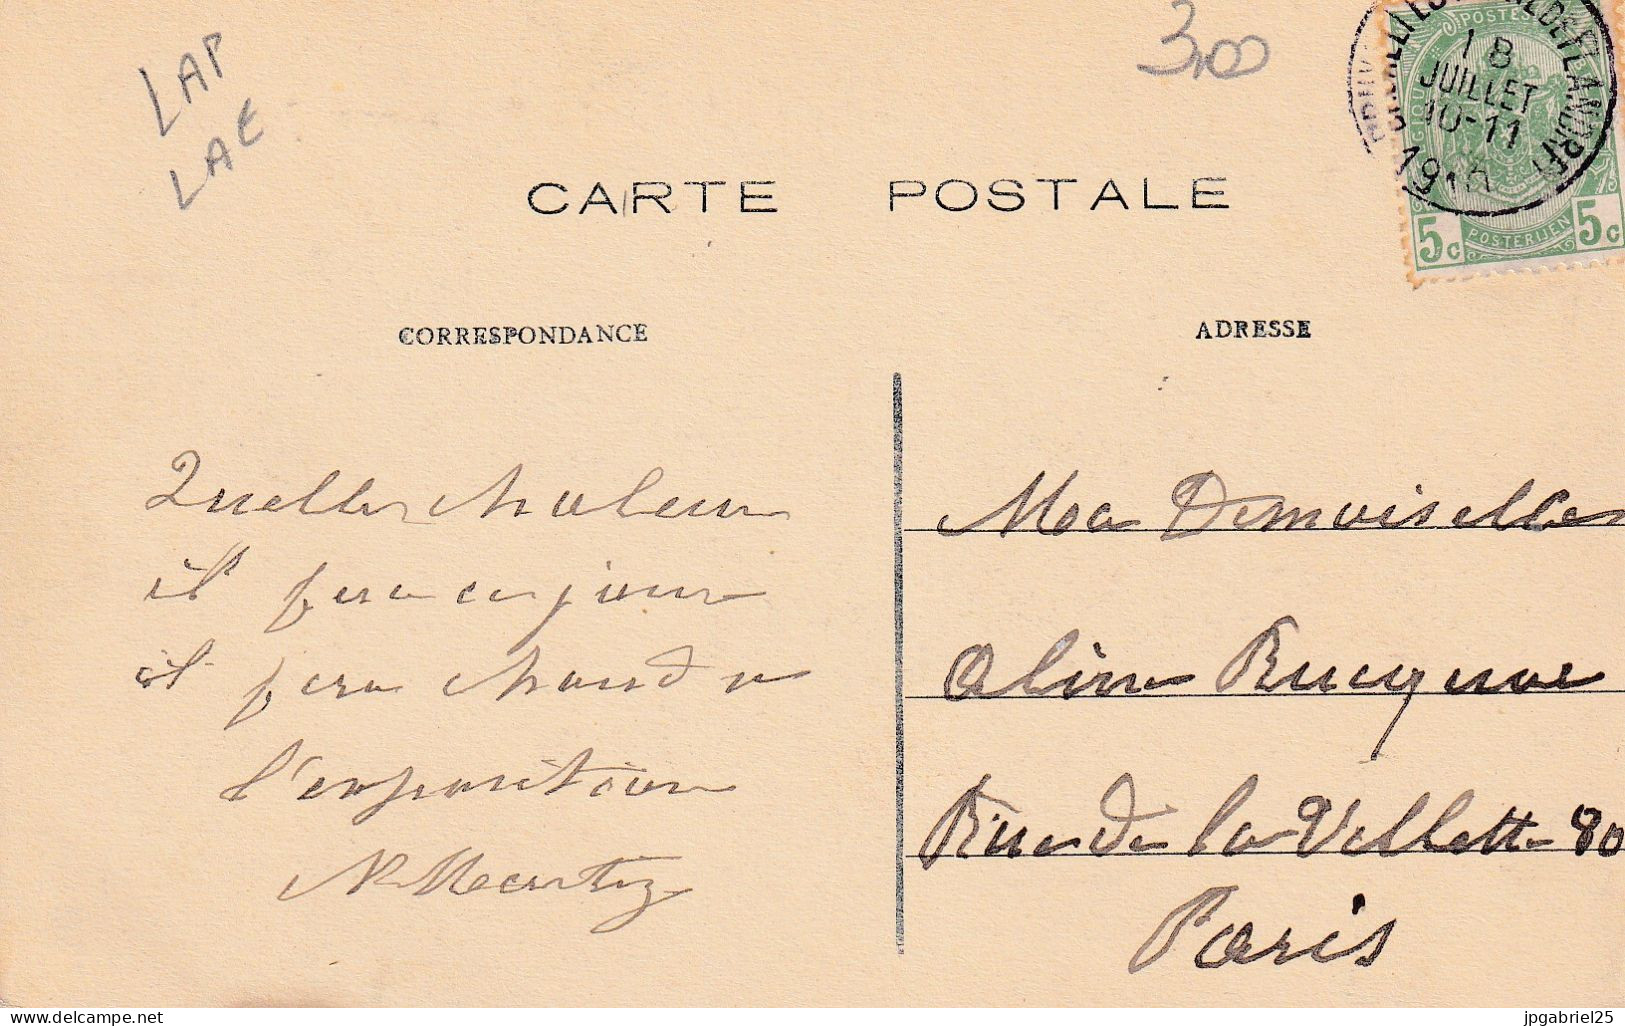 LAP
LAE
3,00
POSTES
18
JUILLET
10-11
5c POSTERIJEN 5c
CARTE POSTALE
CORRESPONDANCE
ADRESSE
Quelle chaleur
il fera ce jour
il fera chaud a
l'exposition
Ma Demoiselle
Aline Bucquoi
Rue de la Vellette 80
Paris
delcampe.net
jpgabriel25